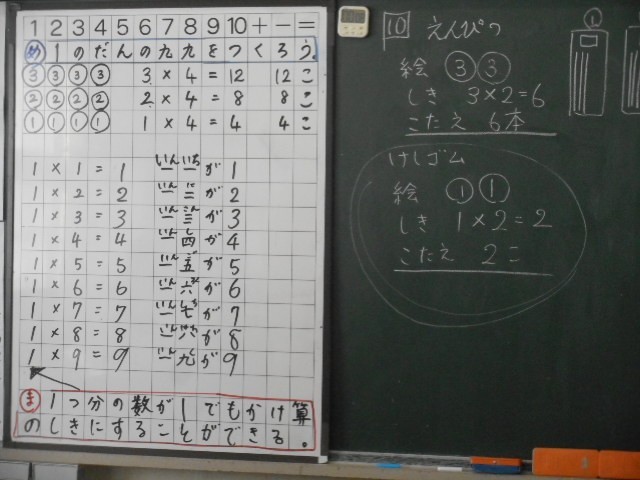 1 2 3 4 5 6 7 8 9 10 + − =
め 1のだんの九九をつくろう。
③③③③ 3×4=12 12こ
②②②② 2×4=8 8こ
①①①① 1×4=4 4こ
1×1=1 一一が1 いんいち
1×2=2 一二が2 いん に
1×3=3 一三が3 いん
1×4=4 一四が4 いん し
1×5=5 一五が5 いん ご
1×6=6 一六が6 いん
1×7=7 一七が7 いん しち
1×8=8 一八が8 いん
1×9=9 一九が9 いん く
ま 1つ分の数が1でもかけ算
のしきにすることができる。
10 えんぴつ
絵 ③③
しき 3×2=6
こたえ 6本
けしゴム
絵 ①①
しき 1×2=2
こたえ 2こ
①